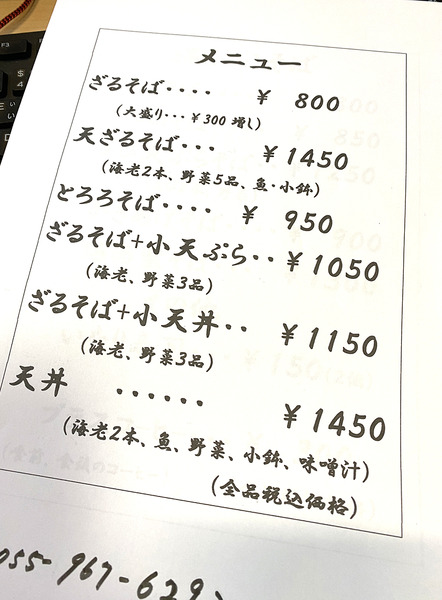 メニュー
ざるそば・・・・ ¥ 800
(大盛り・・・¥300増し)
天ざるそば・・・ ¥1450
(海老2本、野菜5品、魚・小鉢)
とろろそば・・・・ ¥ 950
ざるそば+小天ぷら・・ ¥1050
(海老、野菜3品)
ざるそば+小天丼・・ ¥1150
(海老、野菜3品)
天丼 ・・・・・・ ¥1450
(海老2本、魚、野菜、小鉢、味噌汁)
(全品税込価格)
055-967-629